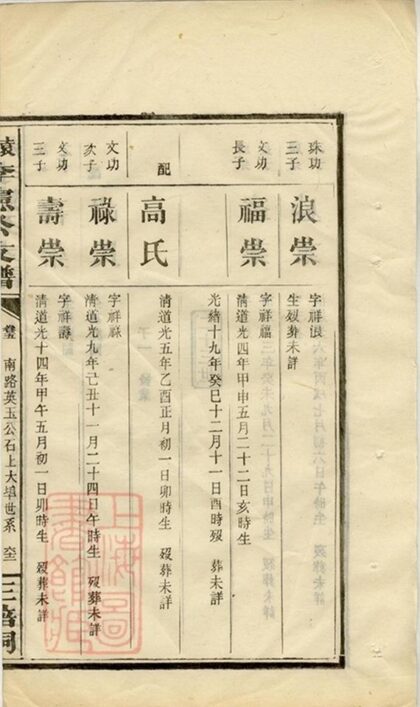 珠功
三子
浪崇
字祥浪
生歿葬未詳
文功
長子
福崇
字祥福
清道光四年甲申五月二十二日亥時生
光緒十九年癸巳十二月十一日酉時歿 葬未詳
配
高氏
清道光五年乙酉正月初一日卯時生 歿葬未詳
文功
次子
祿崇
字祥祿
清道光九年己丑十一月二十四日午時生 歿葬未詳
文功
三子
壽崇
字祥壽
清道光十四年甲午五月初一日卯時生 歿葬未詳
支譜
南路英玉公石上大埠世系
三省詞